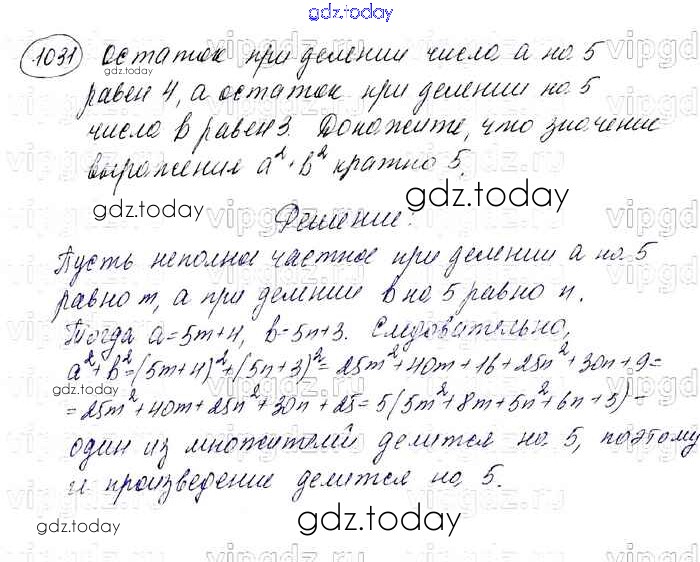 gdz.today
1031 Остаток при делении числа a на 5
gdz.today
равен 4, а остаток при делении на 5
числа b равен 3. Докажите, что значение
выражения a² + b² кратно 5.
gdz.today
gdz.today
Решение:
Пусть неполное частное при делении a на 5
равно m, а при делении b на 5 равно n.
Тогда a=5m+4, b=5n+3. Следовательно,
a²+b²=(5m+4)²+(5n+3)²=25m²+40m+16+25n²+30n+9=
gdz.today
=25m²+40m+25n²+30n+25=5(5m²+8m+5n²+6n+5) -
один из множителей делится на 5, поэтому
и произведение делится на 5.
gdz.today
gdz.today
gdz.today